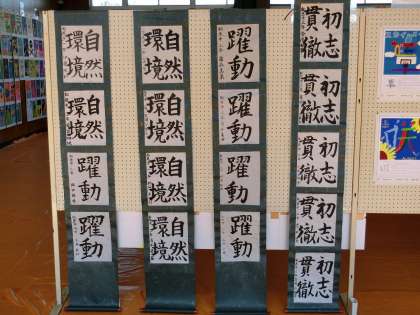 自然
環境
自然
環境
躍動
躍動
自然
環境
自然
環境
自然
環境
自然
環境
躍動
躍動
躍動
躍動
初志
貫徹
初志
貫徹
初志
貫徹
初志
貫徹
初志
貫徹